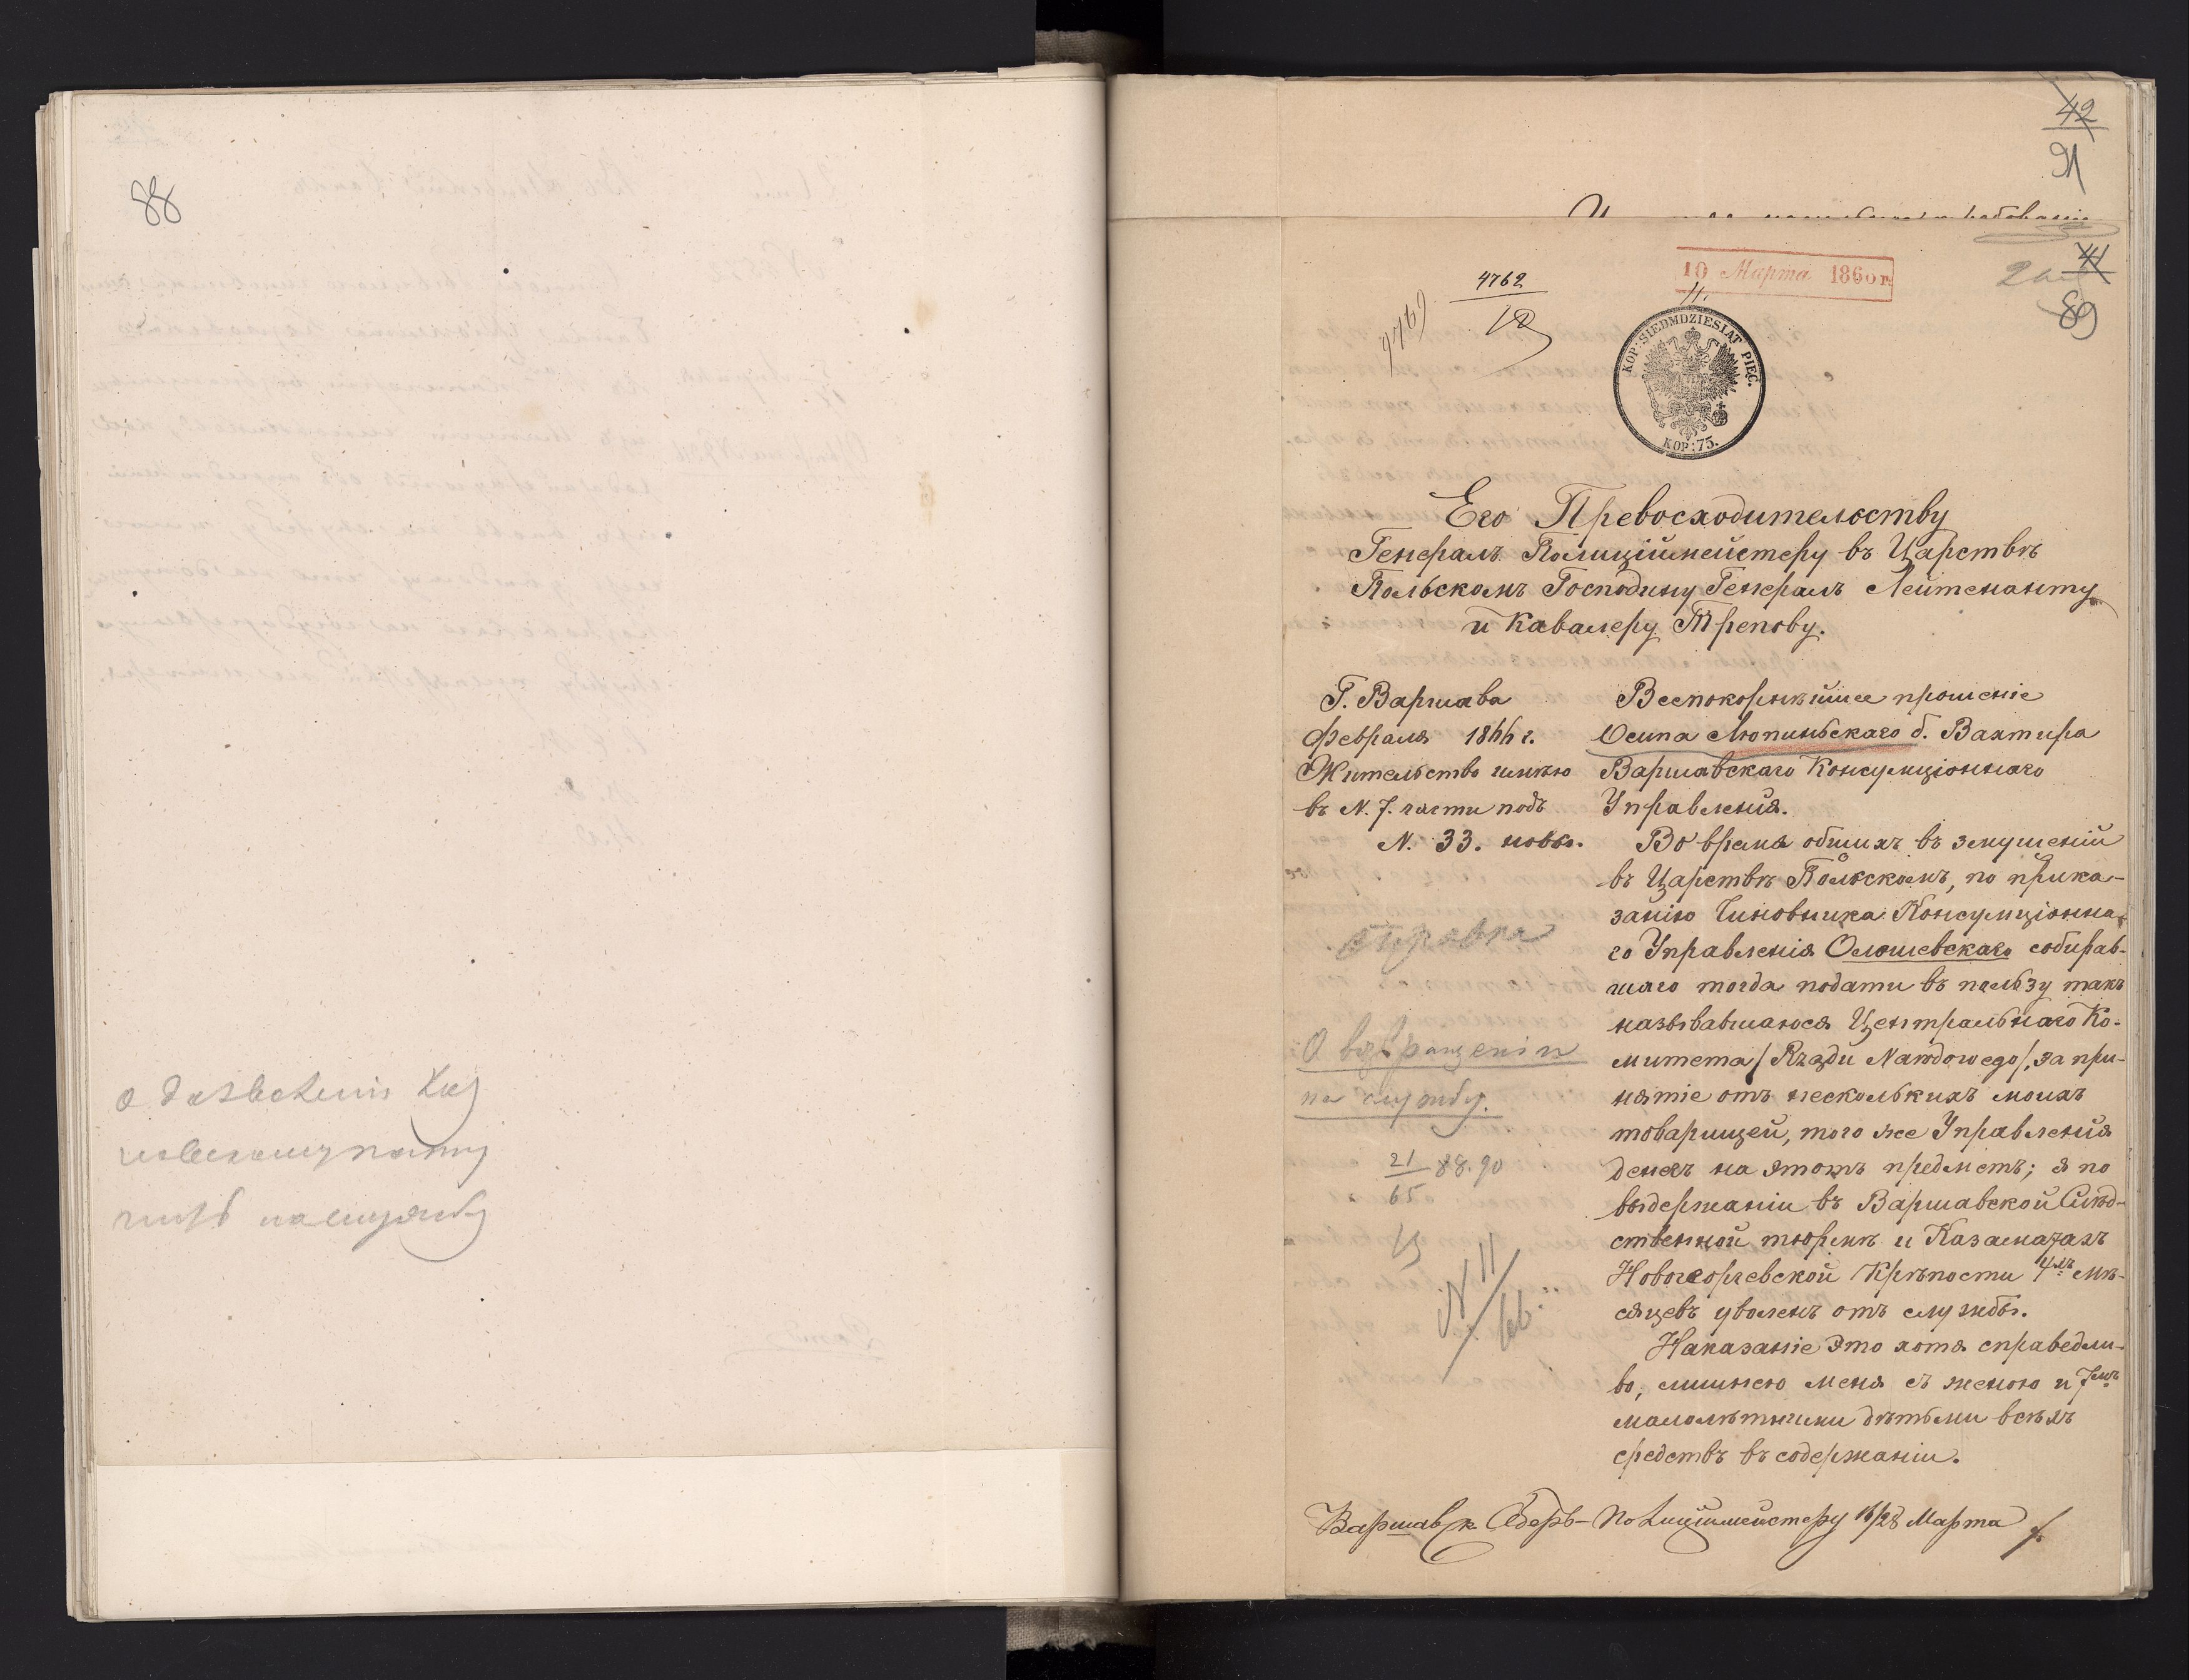 88
о дозволеніи
на службу
42
91
41
89
4762
4769
10 Марта 1866 г.
KOP: SIEDMDZIESIĄT PIĘĆ.
KOP: 75.
Его Превосходительству
Генералъ Полиціймейстеру въ Царствѣ
Польскомъ Господину Генералъ Лейтенанту
и Кавалеру Трепову.
Г. Варшава
Февраля 1866 г.
Жительство имѣю
въ N. 7. части подъ
N. 33. новы.
справка
О возвращеніи
на службу.
21/65 88.90
N 11/66.
Всепокорнѣйшее прошеніе
Осипа Люпиньскаго б. Вахтира
Варшавскаго Консумціоннаго
Управленія.
Во время общихъ въ змущеній
въ Царствѣ Польскомъ, по прика-
занію Чиновника Консумціонна-
го Управленія Олошевскаго собирав-
шаго тогда подати въ пользу такъ
называвшагося Центральнаго Ко-
митета /Rządu Narodowego/, за при-
нятіе отъ несколькихъ моихъ
товарищей, того же Управленія
денегъ на этотъ предметъ; я по
выдержаніи въ Варшавской Слѣд-
ственной тюрмѣ и Казаматахъ
Новогеоргевской Крѣпости 4хъ мѣ-
сяцевъ уволенъ отъ службы.
Наказаніе это хотя справедли-
во, лишило меня съ женою и 7мъ
малолѣтними дѣтьми всѣхъ
средствъ въ содержаніи.
Варшавск. Оберъ-Полиціймейстеру 16/28 Марта